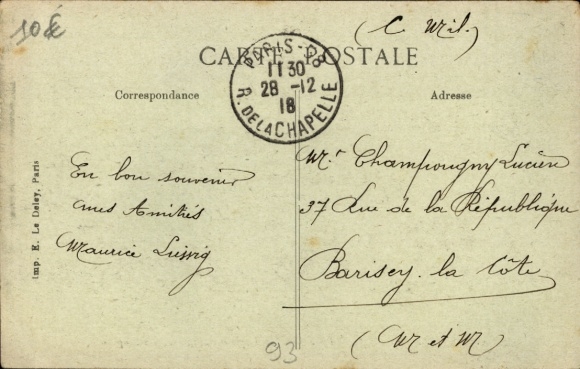 10€
(C Mil.)
CARTE POSTALE
PARIS-28
11 30
28 -12
18
R. DE LA CHAPELLE
Correspondance
Adresse
En bon souvenir
mes Amitiés
Maurice
Mr Champougny Lucien
37 Rue de la République
Barisey-la Côte
(M et M)
Imp. E. Le Deley, Paris
93